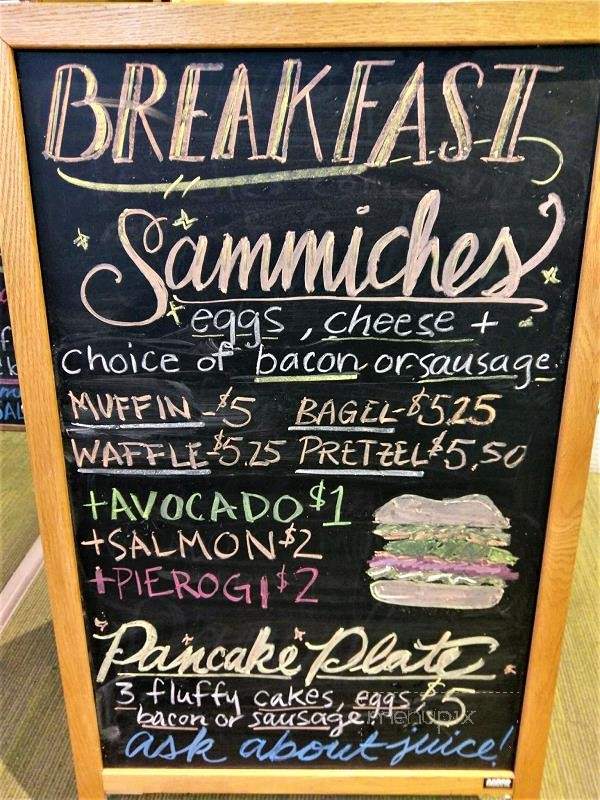 BREAKFAST
Sammiches
eggs, cheese +
choice of bacon or sausage
MUFFIN - $5 BAGEL - $5.25
WAFFLE - $5.25 PRETZEL $5.50
+AVOCADO $1
+SALMON $2
+PIEROGI $2
Pancake Plate
3 fluffy cakes, eggs $5
bacon or sausage
menupix
ask about juice!